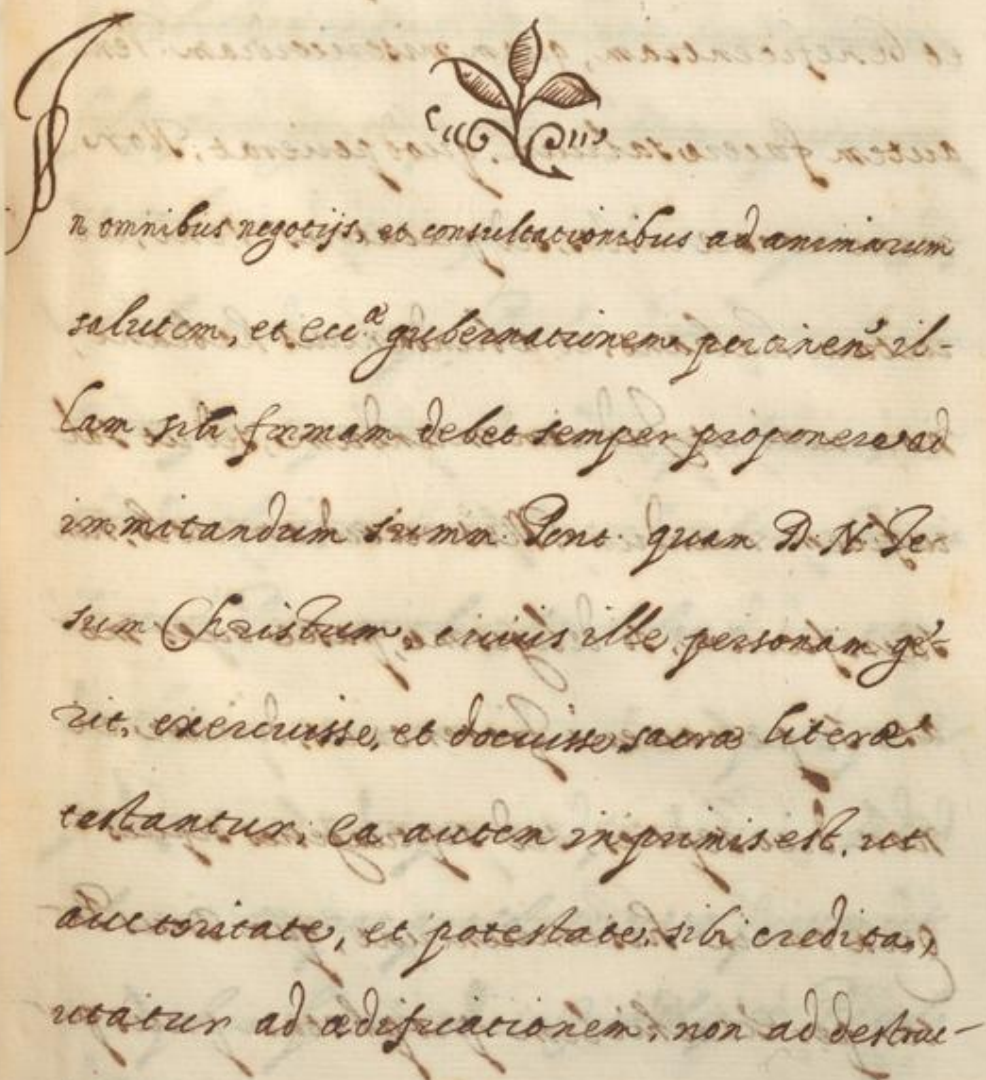 In omnibus negotijs, et consultationibus ad animarum
salutem, et Eccl.æ gubernationem pertinen' il-
lam sibi formam debet semper proponere ad
immitandum summ. Pont. quam D. N. Je-
sum Christum, cuius ille personam ge-
rit, exercuisse, et docuisse sacræ literæ
testantur. Ea autem in primis est, ut
auctoritate, et potestate sibi credita,
utatur ad ædificationem, non ad destruc-